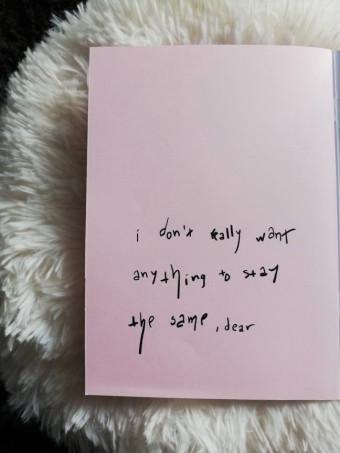 i don't really want
anything to stay
the same, dear